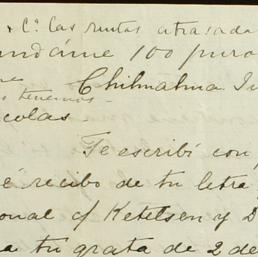 & Cª las rentas atrasada
mándame 100 puro
Chihuahua Ju
s tenemos
colas
Te escribí con
é recibo de tu letra
onal c/ Ketelsen y D
a tu grata de 2 de